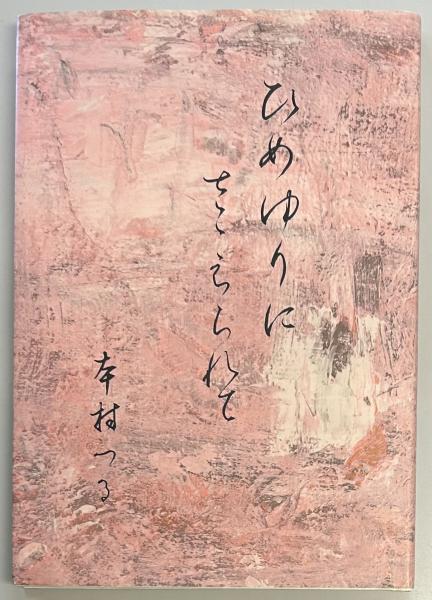 ひめゆりに
ささえられて
本村つる